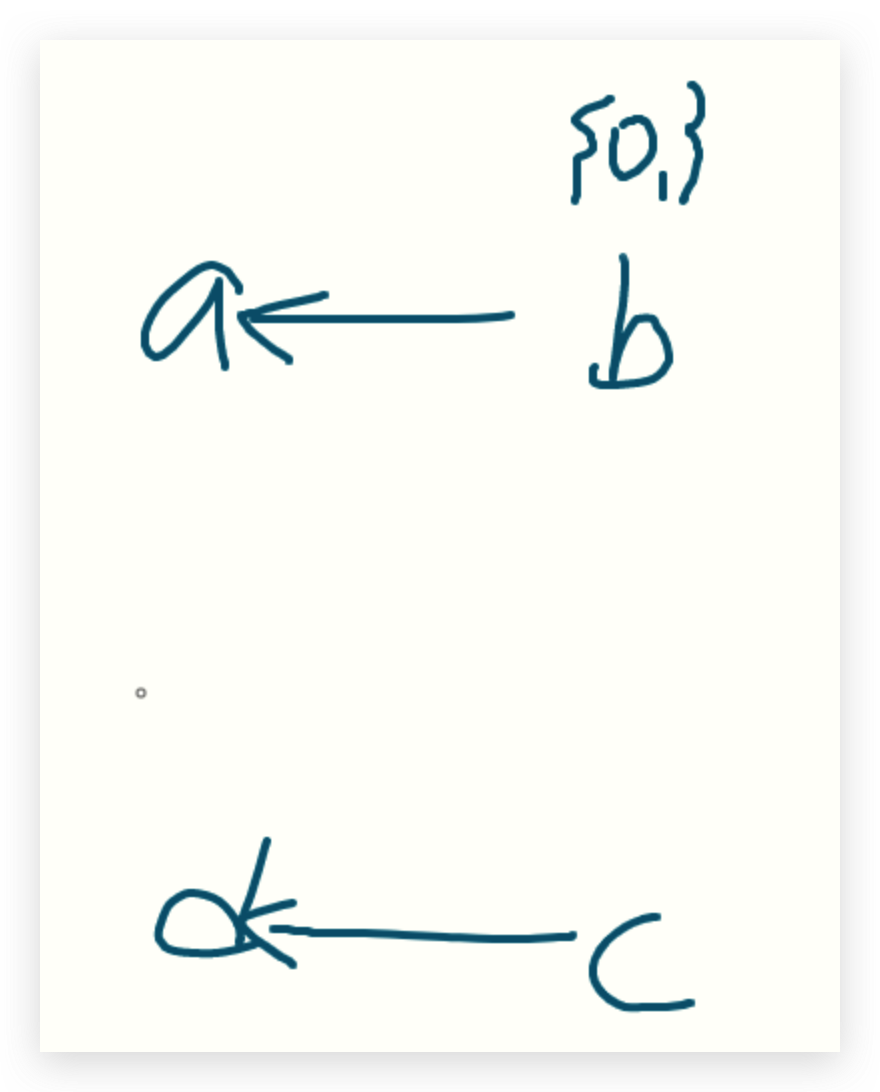 {0,}
a ← b
d ← c